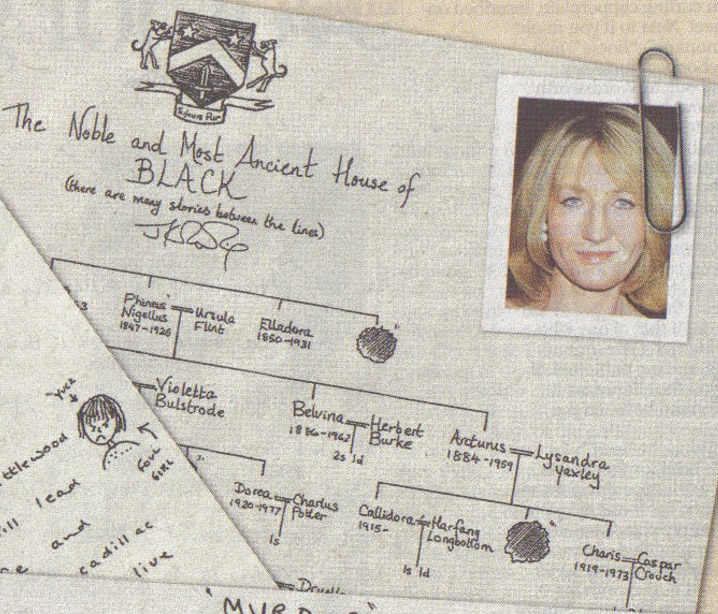 The Noble and Most Ancient House of
BLACK
(there are many stories between the lines)
JKRowling
Phineas Nigellus
1847-1925
Ursula Flint
Elladora
1850-1931
Violetta
Bulstrode
Belvina
1886-1962
Herbert
Burke
2s 1d
Arcturus
1884-1959
Lysandra
Yaxley
Dorea
1920-1977
Charlus
Potter
1s
Callidora
1915-
Harfang
Longbottom
1s 1d
Charis
1919-1973
Caspar
Crouch
YUCK
FOUL
GIRL
ttlewood
ill lead
and
cadillac
live